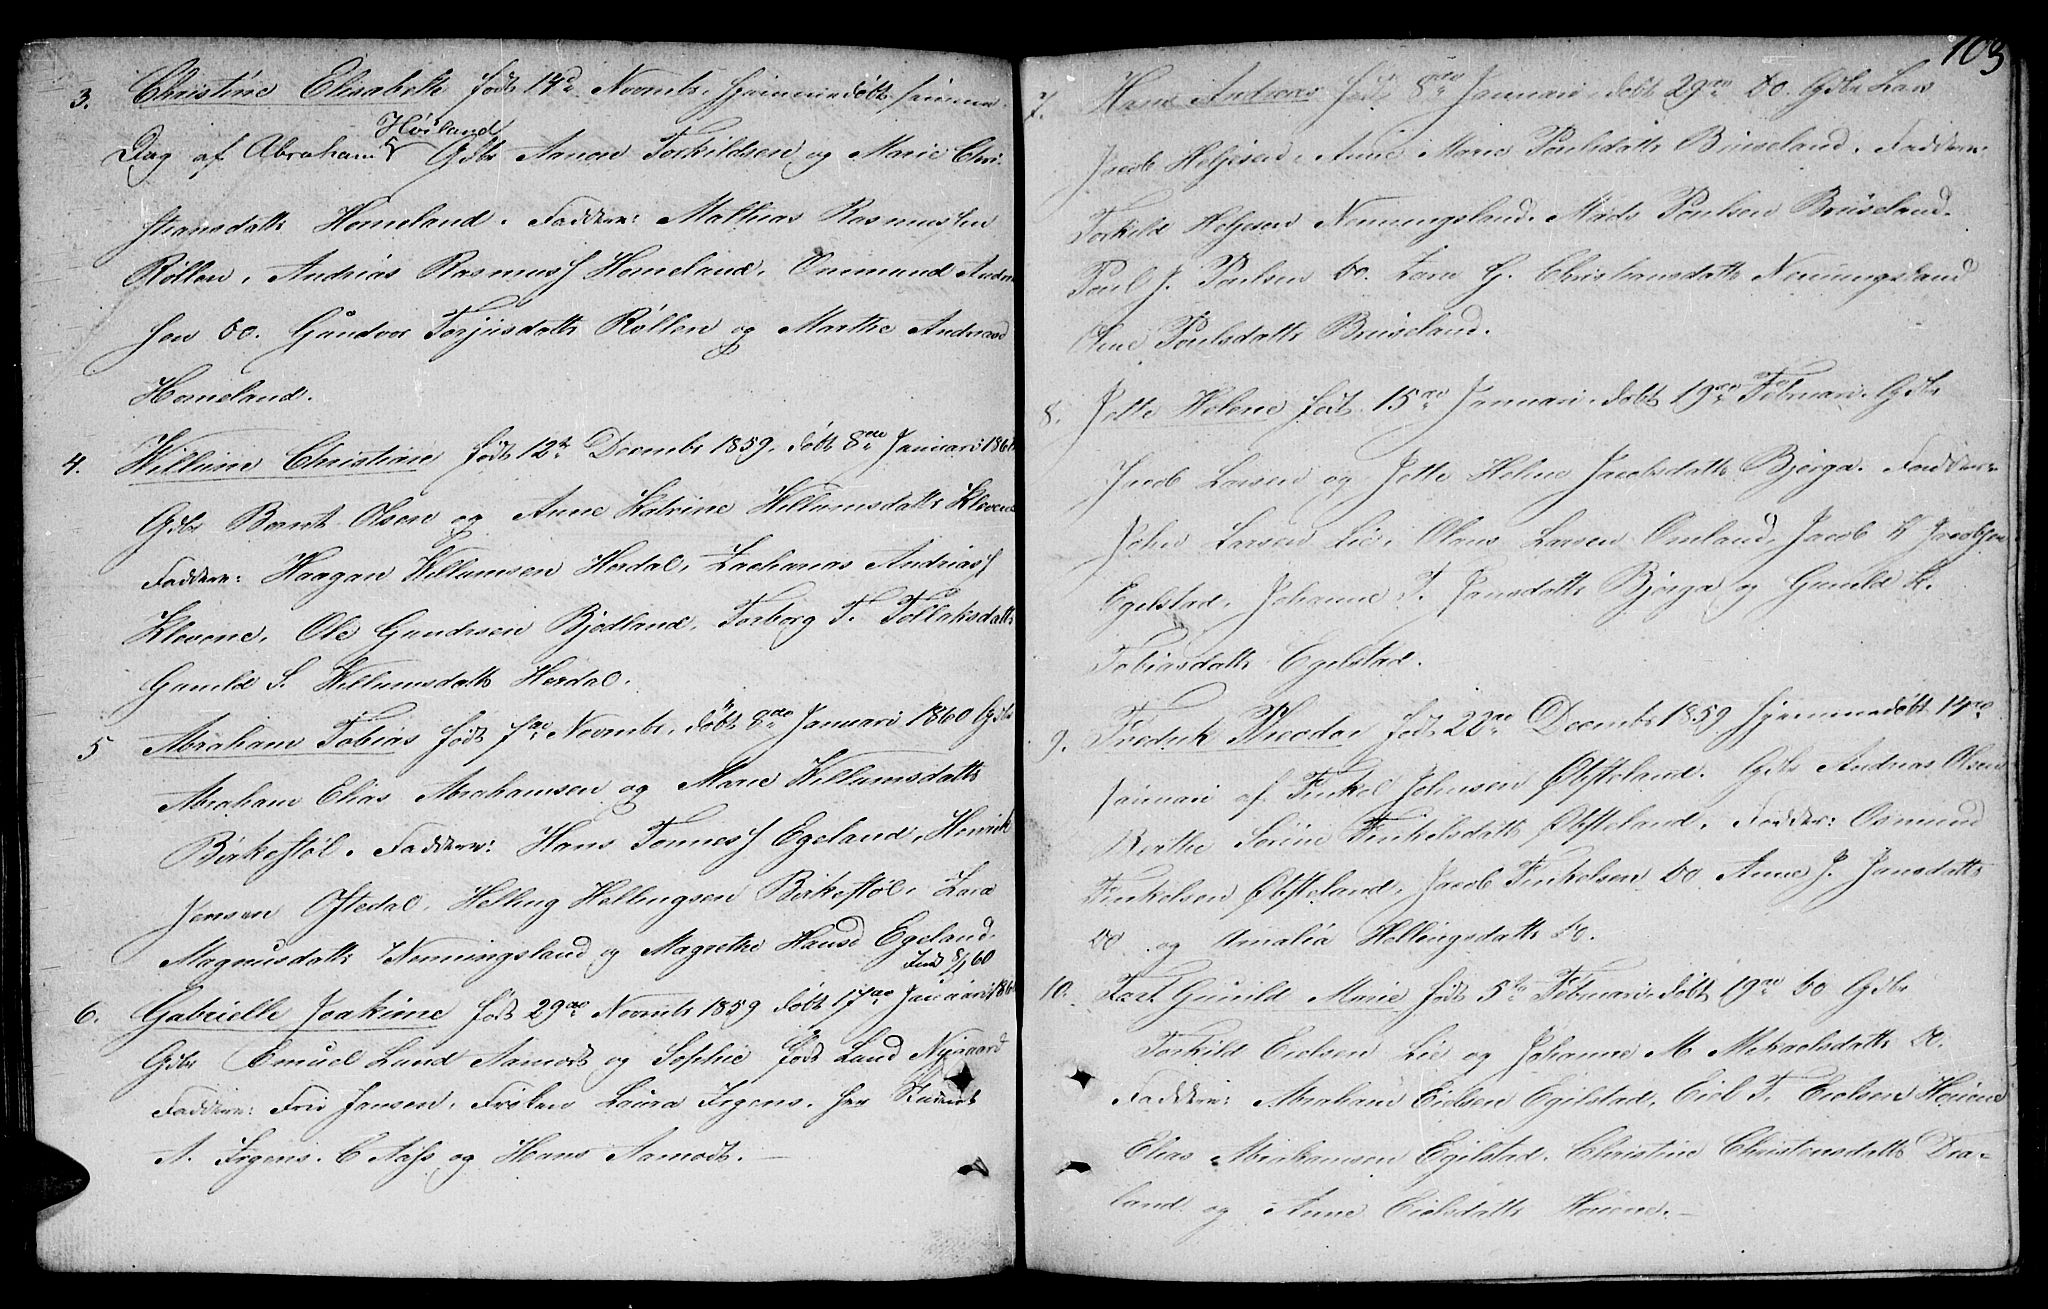 3. Christine Elisabeth født 14d Novmbr. hjemmedøbt samme
Høiland
Dag af Abraham Gdbr Aanon Torkildsen og Marie Chri-
stiansdattr Homeland. Faddere: Mathias Rasmussen
Røllen, Andrias Rasmuss Homeland, Ommund Andrea
sen do. Gundvor Torjusdattr Røllen og Marthe Andreasd
Homeland.
4. Willumine Christine født 12te Decembr 1859, døbt 8de Januari 1860
Gdbr Bernt Olsen og Anne Katrine Willumsdattr Klevene
Faddere: Haagan Willumsen Herdal, Zacharias Andriass
Klevene, Ole Gundersen Bjodland, Torborg T. Tollaksdattr
Gunild S. Willumsdattr Herdal.
5 Abraham Tobias født 7de Novmbr, døbt 8de Januari 1860 Gdbr
Abraham Elias Abrahamsen og Marie Willumsdattr
Birkestøl. Faddere: Hans Tønness Egeland, Henrick
Jensen Oftedal, Helling Hellingsen Birkestøl, Lava
Magnusdattr Nenningsland og Magrethe Hansd Egeland.
Indt 8/1 60
6. Gabrielle Joakime født 29de Novmbr 1859 døbt 17de Januari 1860
Gdbr Emuel Lund Aamodt og Sophie født Lund Nygaard
Faddere: Fru Jansen, Frøken Laura Irgens, Her Student
A. Irgens. C Aass og Hans Aamodt.
103
7. Hans Andreas født 8de Januari, døbt 29de do. Gdbr Lars
Jacob Heljesen, Anne Marie Poulsdattr Bruseland. Faddere:
Torkild Heljesen Nenningsland. Mads Poulsen Bruseland.
Poul J. Poulsen do. Lave G. Christiansdattr Nenningsland
Oline Poulsdattr Bruseland.
8. Jette Helene født 15de Januari, døbt 19de Februari. Gdbr
Jacob Larsen og Jette Helene Jacobsdattr Bjerga. Faddere:
John Larsen Lie, Olaus Larsen Omland, Jacob K Jacobsen
Egelstad, Johanne T. Jansdattr Bjerga og Gunild K.
Tobiasdattr Egelstad.
9. Fredrik Theodor født 22de Decembr 1859 hjemmedøbt 14de
Januari af Finkel Johnsen Øbsteland. Gdbr Andrias Olsen
Berthe Serine Finkelsdattr Øbsteland. Fadder: Osmund
Finkelsen Øbsteland, Jacob Finkelsen do Anne J. Jansdattr
do og Amalia Hellingsdattr do.
10. Taat Gunild Marie født 5te Februari, døbt 19de do Gdbr
Torkild Eielsen Lie og Johanne M Mikaelsdattr do.
Faddere: Abraham Eielsen Egilstad, Eiel T. Eielsen Houene
Elias Abrahamsen Egilstad. Christine Christensdattr Dra-
land og Anne Eielsdattr Houene.